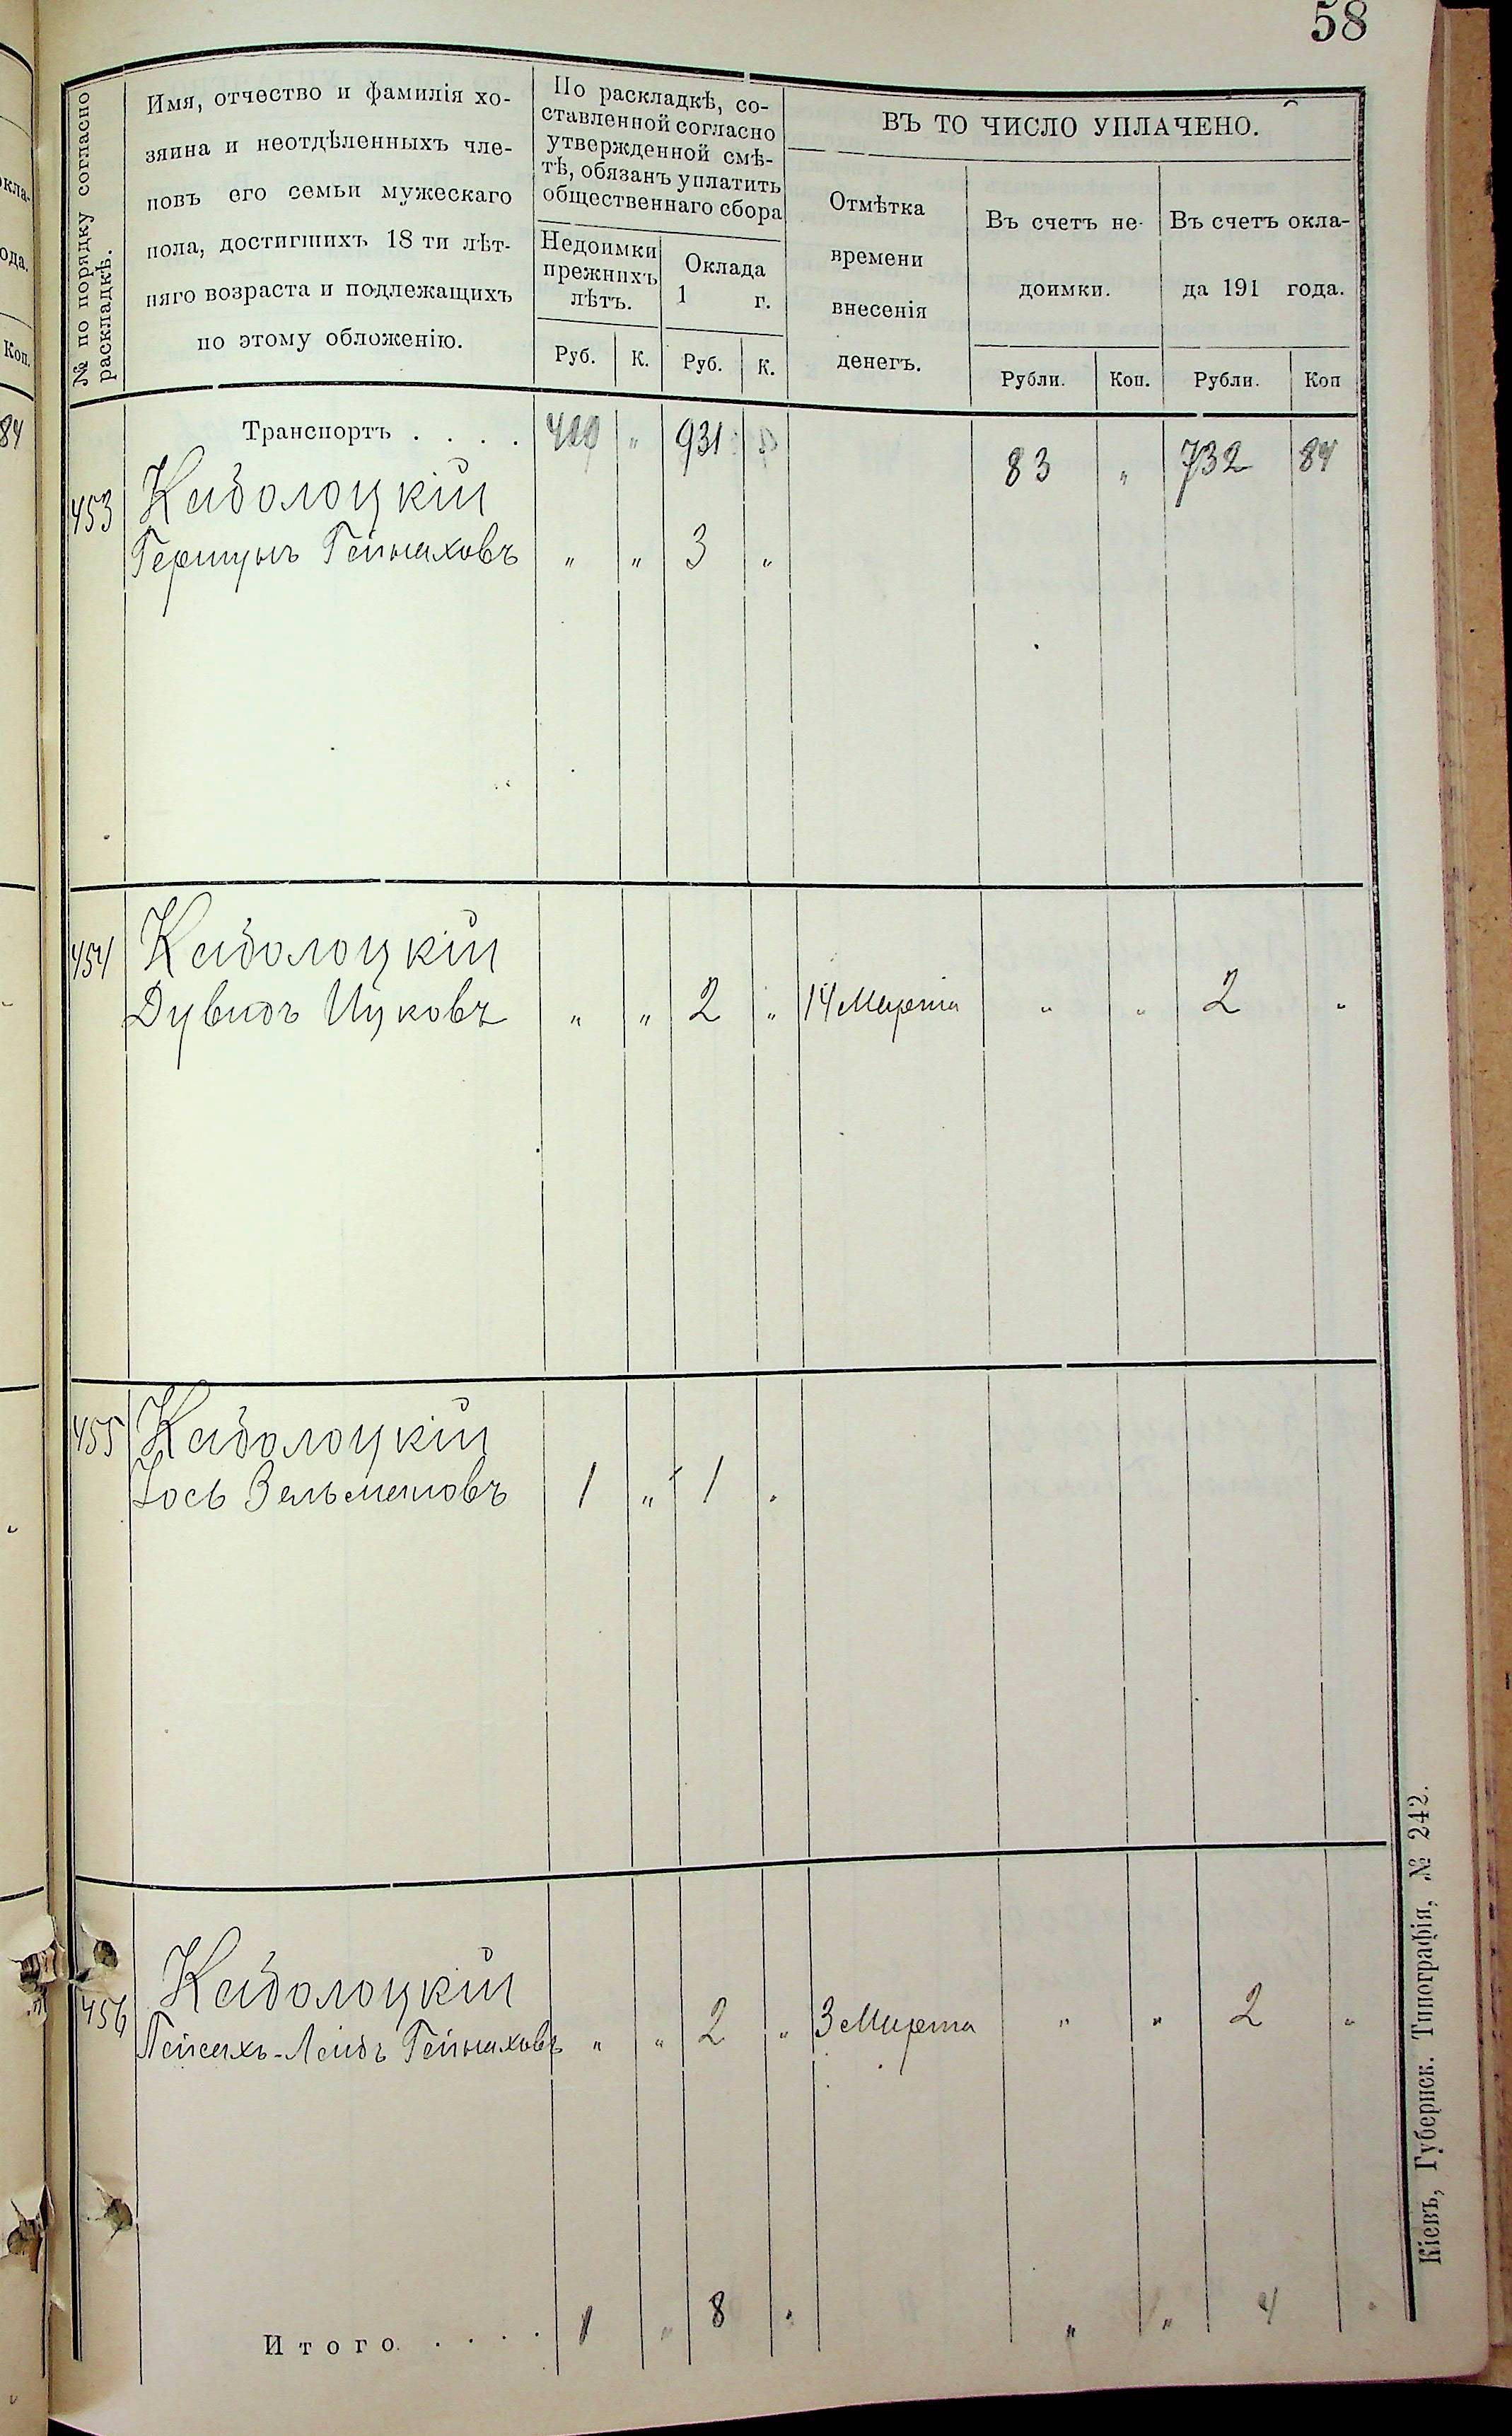 58
№ по порядку согласно
раскладкѣ.
Имя, отчество и фамилія хо-
зяина и неотдѣленныхъ чле-
новъ его семьи мужескаго
пола, достигшихъ 18 ти лѣт-
няго возраста и подлежащихъ
по этому обложенію.
По раскладкѣ, со-
ставленной согласно
утвержденной смѣ-
тѣ, обязанъ уплатить
общественнаго сбора
Недоимки
прежнихъ
лѣтъ.
Оклада
1 г.
Руб. К. Руб. К.
ВЪ ТО ЧИСЛО УПЛАЧЕНО.
Отмѣтка
времени
внесенія
денегъ.
Въ счетъ не-
доимки.
Въ счетъ окла-
да 191 года.
Рубли. Коп. Рубли. Коп
Транспортъ . . . . 400 " 931 83 " 732 84
453 Кадолоцкій
Гершунъ Гейнаховъ " " 3 "
454 Кадолоцкій
Дувидъ Ицковъ " " 2 " 14 Марта " " 2 "
455 Кадолоцкій
Іось Зельмановъ 1 " 1 "
456 Кадолоцкій
Пейсахъ-Лейбъ Гейнаховъ " " 2 " 3 Марта " " 2 "
Итого . . . . 1 " 8 " " " 4 "
Кіевъ, Губернск. Типографія, № 242.
окла-
ода.
Коп.
84